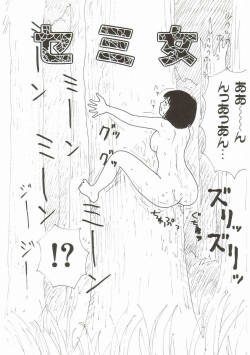 セミ女
ああ~~ん
んっあっあん…
ミーン
ミーン
ミーン
グッ
グッ
ズリッ
ズリッ
ちゅぷっ
ぐちゅっ
ジージー
!?